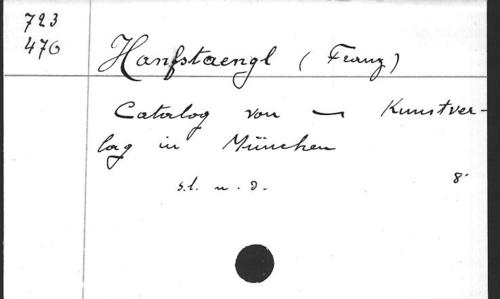 723
476
Hanfstaengl (Franz)
Catalog von — Kunstver-
lag in München
s.l. n. d. 8°